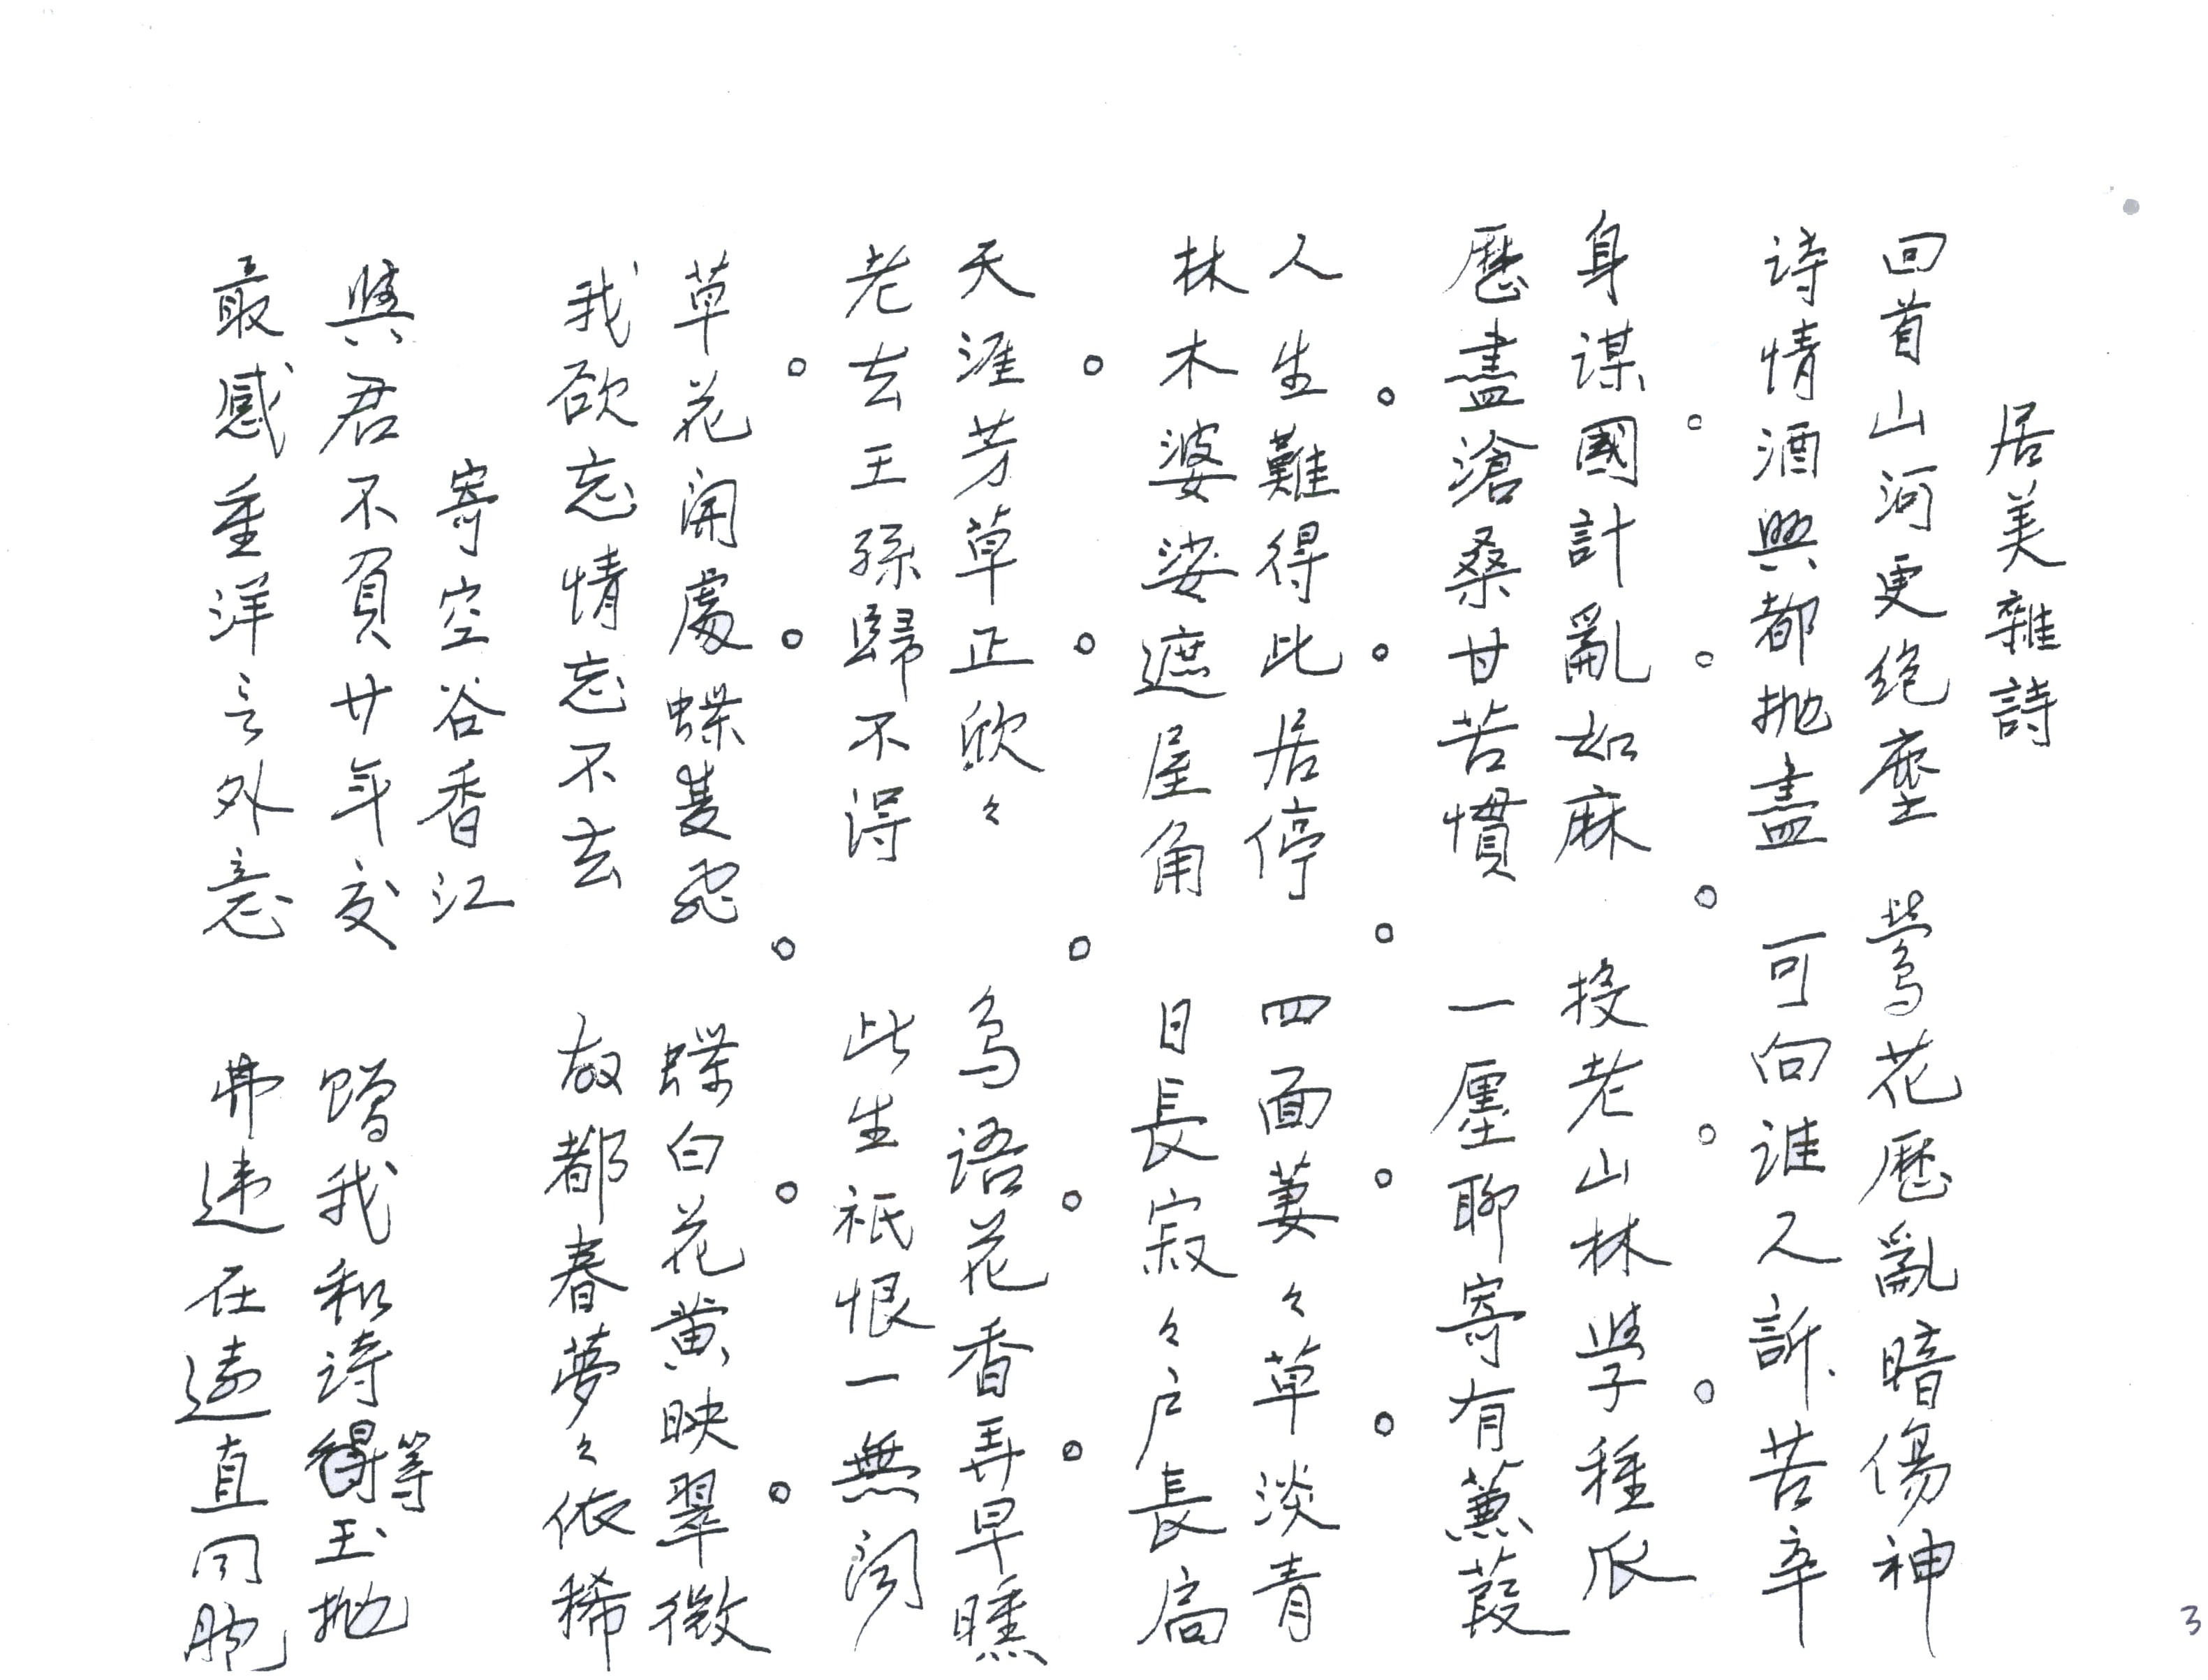 居美雜詩
回首山河更绝塵　鶯花歷亂暗傷神
诗情酒興都抛盡　可向谁人訴苦辛
。。。。。
身謀國計亂如麻　投老山林學種瓜
歷盡滄桑甘苦慣　一廛聊寄有蒹葭
。。。。。
人生難得此居停　四面萋々草淡青
林木婆娑遮屋角　日長寂々户長扃
。。。。。
天涯芳草正欣々　鸟语花香弄早曛
老去王孫歸不得　此生祇恨一無闻
。。。。。
草花開處蝶雙飛　蝶白花黄映翠微
我欲忘情忘不去　故都春夢々依稀
寄空谷香江
與君不負廿年交　贈我和诗等玉抛
最感重洋言外意　弗违在遠直同胞
3